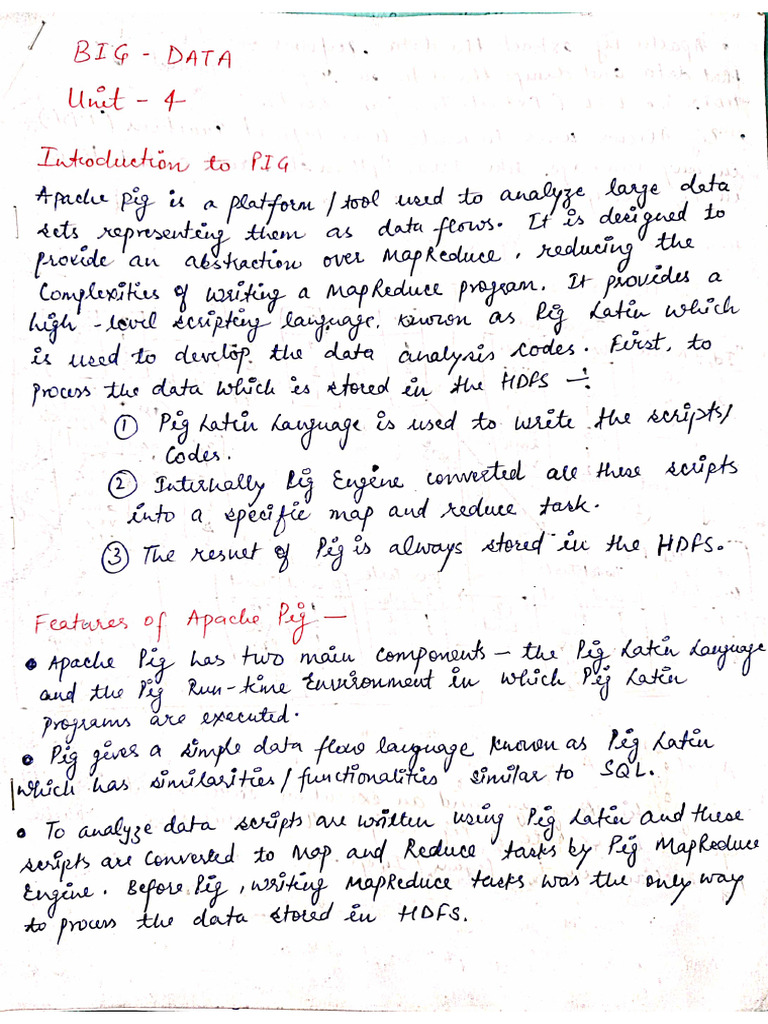 BIG - DATA
Unit - 4
Introduction to PIG
Apache Pig is a platform / tool used to analyze large data
sets representing them as data flows. It is designed to
provide an abstraction over MapReduce, reducing the
complexities of writing a MapReduce program. It provides a
high-level scripting language, known as Pig Latin which
is used to develop the data analysis codes. First, to
process the data which is stored in the HDFS —:
① Pig Latin Language is used to write the scripts/
codes.
② Internally Pig Engine converted all these scripts
into a specific map and reduce task.
③ The result of Pig is always stored in the HDFS.
Features of Apache Pig: —
• Apache Pig has two main components — the Pig Latin Language
and the Pig Run-time Environment in which Pig Latin
programs are executed.
• Pig gives a simple data flow language known as Pig Latin
which has similarities / functionalities similar to SQL.
• To analyze data scripts are written using Pig Latin and these
scripts are converted to Map and Reduce tasks by Pig MapReduce
Engine. Before Pig, writing MapReduce tasks was the only way
to process the data stored in HDFS.